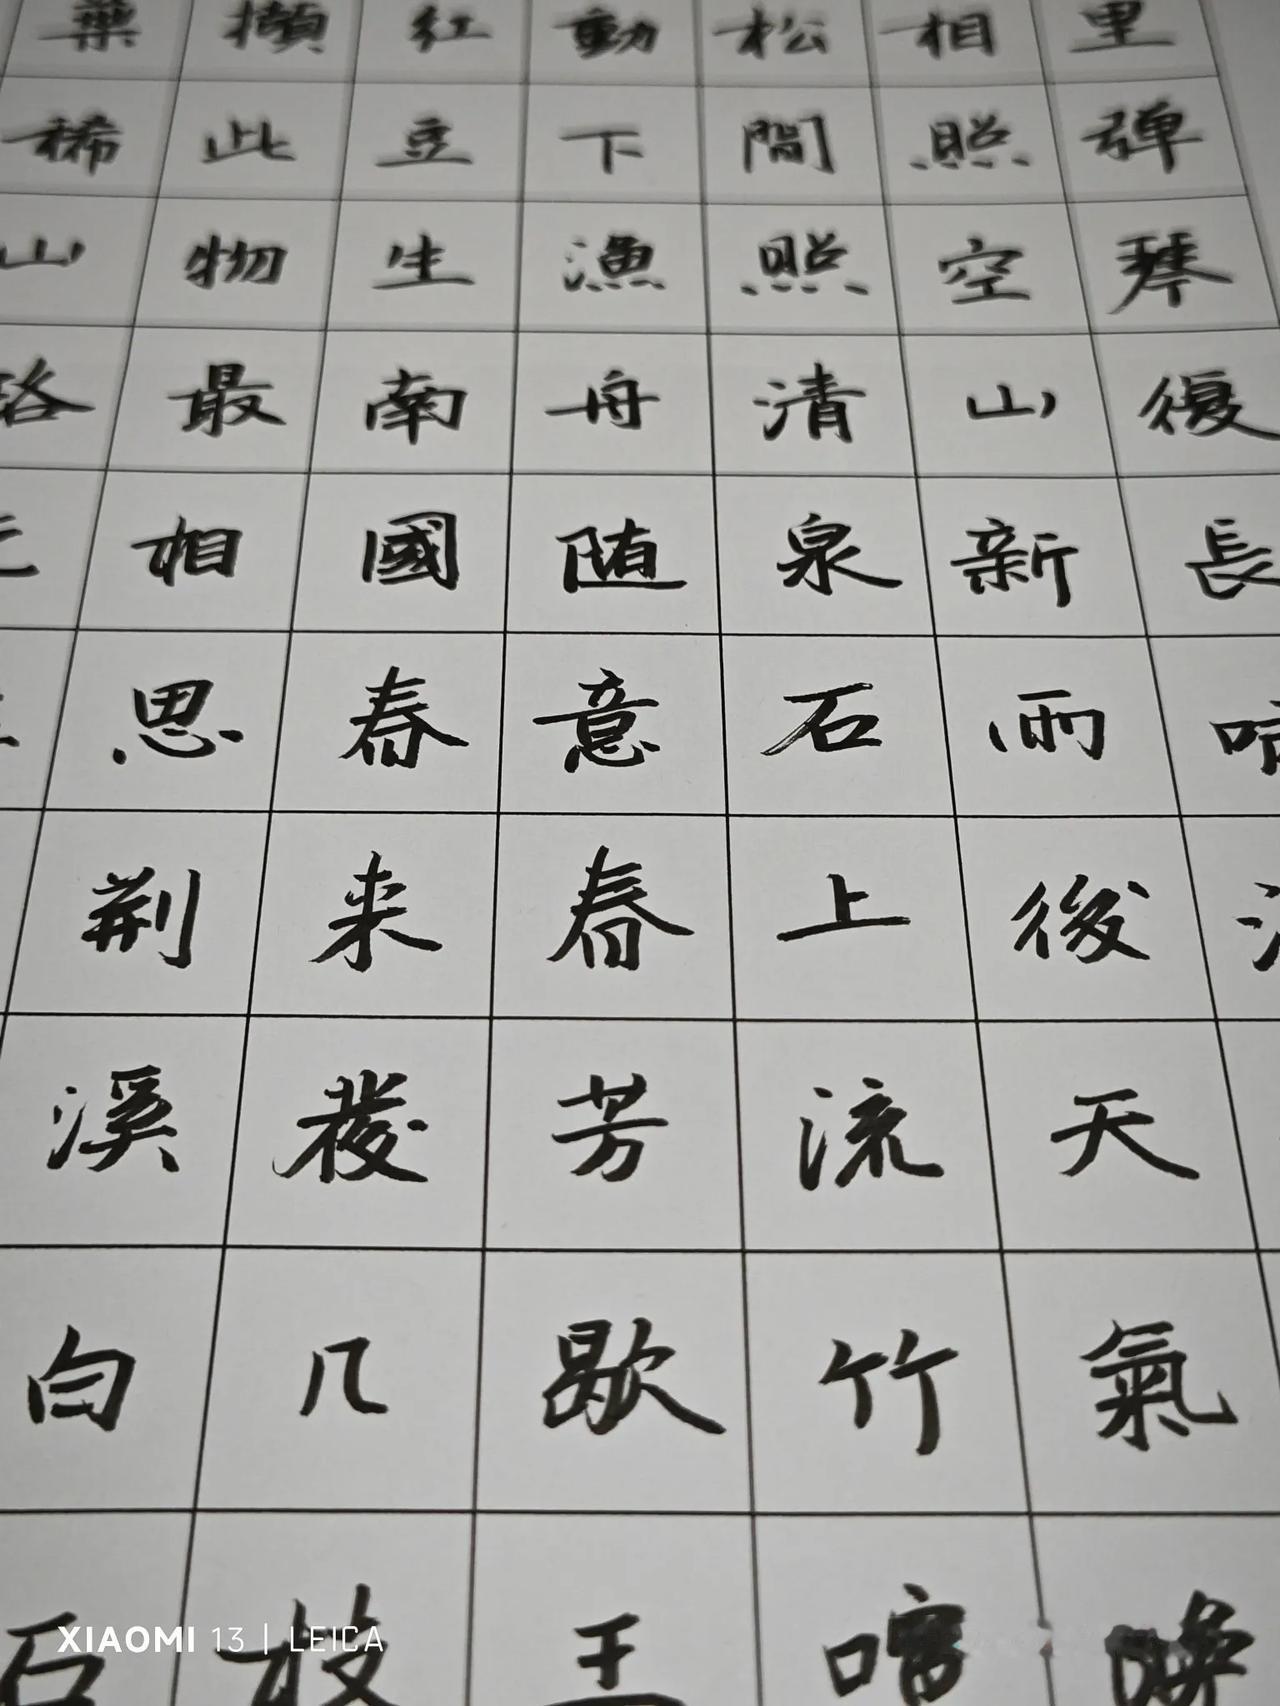 里弹琴復長
相照空山新雨後天氣晚
松間照清泉石上流竹喧
動下漁舟随意春芳歇王
紅豆生南國春来發几枝
擷此物最相思荆溪白石
葉稀山路元
XIAOMI 13 | LEICA